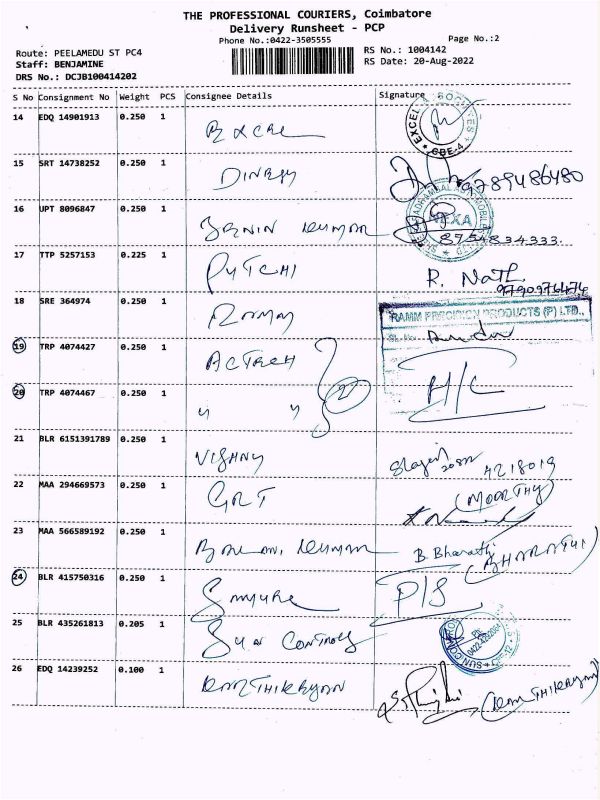 THE PROFESSIONAL COURIERS, Coimbatore
Delivery Runsheet - PCP
Phone No.:0422-3505555 Page No.:2
Route: PEELAMEDU ST PC4 RS No.: 1004142
Staff: BENJAMINE RS Date: 20-Aug-2022
DRS No.: DCJB100414202
S No Consignment No Weight PCS Consignee Details Signature
14 EDQ 14901913 0.250 1 EXCEL
CBE-4
15 SRT 14738252 0.250 1 DINESH 9789486480
16 UPT 8096847 0.250 1 KUMAR NEXA
8754834333.
17 TTP 5257153 0.225 1 R. Nath
9790976474
18 SRE 364974 0.250 1 RAMM PRECISION PRODUCTS (P) LTD.,
19 TRP 4074427 0.250 1 ACTECH
20 TRP 4074467 0.250 1 " " 2 H/C
21 BLR 6151391789 0.250 1 VISHNU 4218019
22 MAA 294669573 0.250 1 GRT (MOORTHY)
23 MAA 566589192 0.250 1 KUMAR B. Bharathi (BHARATHI)
24 BLR 415750316 0.250 1 P/S
25 BLR 435261813 0.205 1 Sun Controls
26 EDQ 14239252 0.100 1